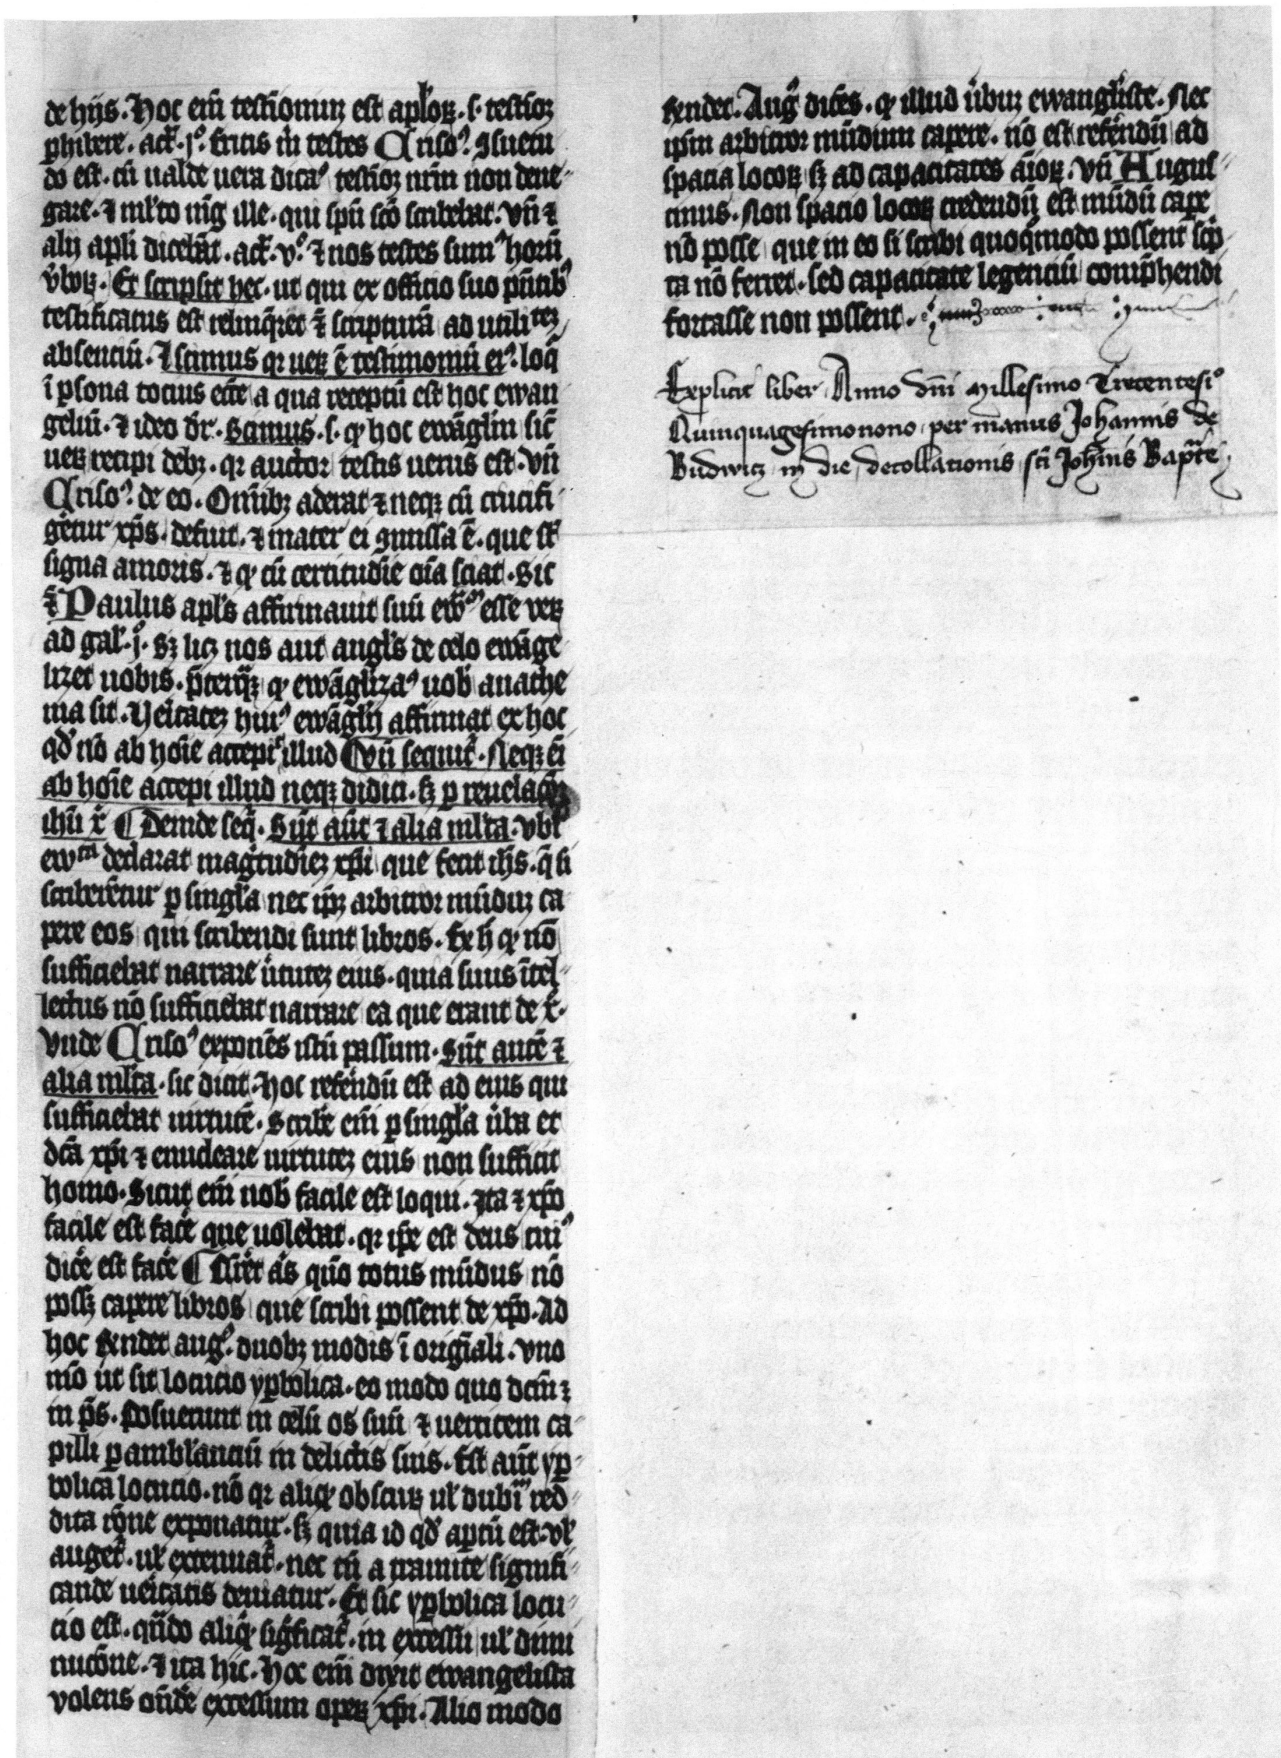 de hiis. Hoc em̄ testimoniuꝫ est aplo̓ꝝ. s. testiōꝫ
ꝑhibere. act̓. j°. eritis m̄ testes Criso⁹. ꝯsuetu
do est. cū ualde uera dicat᷑ testiōꝫ nr̄m non dene⸗
gare. ⁊ ml̓to mḡ ille. qui spū sc̄o scribebat. vn̄ ⁊
alij apl̓i dicebāt. act̓. v°. ⁊ nos testes sum⁹ horū
v̓boꝝ. Et scripsit hec. ut qui ex officio suo p̄ntib⁹
testificatus est relinq̄ret ī scripturā ad utilitateꝫ
absenciū. ⁊ scimus qꝛ ueꝝ ē testimoniū ei⁹. loq̄
ī ꝑsona tocius ecc̄e a qua receptū est hoc ewan
geliū. ⁊ ideo dr̄. Scimus. s. qꝫ hoc ewāgliū sic̄
ueꝝ recipi debꝫ. qꝛ auctor testis uerus est. vn̄
Criso⁹. de eo. Om̄ibꝫ aderat ⁊ neqꝫ cū crucifi
getur xp̄s. defuit. ⁊ mater ei ꝯmissa ē. que st̓
signa amoris. ⁊ qꝫ cū certitudīe oīa sciat. Sic
⁊ Paulus apl̓s affirmauit suū ewm esse ueꝝ
ad gal̓. j°. Sꝫ licꝫ nos aut angl̓s de celo ewāge
lizet uobis. p̄terq̄ꝫ qꝫ ewāglizat᷑ uob̓ anathe
ma sit. Ueritateꝫ hui⁹ ewāglij affirmat ex hoc
qd̓ nō ab hoīe accepit illud Cvn̄ sequit᷑. Neqꝫ ei̅
ab hoīe accepi illud neqꝫ didici. sꝫ ꝑ reuelac̄oꝫ
ihū x̄ ¶ Deinde seq̄. Sūt aūt ⁊ alia ml̓ta. vbi
ewta declarat mag̓tudīeꝫ xp̄i que fecit ih̄s. q̄ si
scriberētur ꝑ singl̓a nec ip̄ꝫ arbitror mūduꝫ ca
pere eos qui scribendi sunt libros. Ex h̓ qꝫ nō
sufficiebat narrare v̓tuteꝫ eius. quia suus ītel⸗
lectus nō sufficiebat narrare ea que erant de x̄.
Vnde Criso⁹ exponēs istū passum. Sūt autē ⁊
alia ml̓ta. sic dicit. Hoc refe̓ndū est ad eius qui
sufficiebat uirtutē. Scrib̓e em̄ ꝑ singl̓a v̓ba et
dc̄a xp̄i ⁊ enucleare uirtuteꝫ eius non sufficit
homo. Sicut em̄ nob̓ facile est loqui. ita ⁊ xp̄o
facile est fac̓e que uolebat. qꝛ ip̄e est deus cui⁹
dic̓e est fac̓e ¶ Quer̓et ās quō totus mūdus nō
possꝫ capere libros que scribi possent de xp̄o. Ad
hoc r̄ndet aug⁹. duobꝫ modis ī origīali. vno
mō ut sit locucio yꝑbolica. eo modo quo dc̄m ⁊
in p̄s. Posuerunt in celū os suū ⁊ uerticem ca⸗
pilli ꝑambl̓anciū in delictis suis. Est aūt yꝑ⸗
bolica locucio. nō qꝛ aliqꝫ obscuꝝ ul̓ dubiū red⸗
dita rōne exponatur. sꝫ quia id qd̓ aꝑtū est. ul̓
auget᷑. ul̓ extenuat᷑. nec tn̄ a tramite signifi⸗
cande ueritatis deuiatur. Et sic yꝑbolica locu⸗
cio est. qn̄do aliqꝫ sig̓ficat᷑. in excessu ul̓ dimi
nucōne. ⁊ ita hic. Hoc em̄ dixit ewangelista
volens ond̓e excessum opeꝝ xp̄i. Alio modo
r̄ndet. Aug⁹ dicēs. qꝫ illud v̓buꝫ ewangl̓iste. Nec
ip̄m arbitror mūdum capere. nō est refe̓ndū ad
spacia locoꝝ sꝫ ad capacitates aīoꝝ. vn̄ Augus⸗
tinus. Non spacio locoꝝ credendū est mūdū cape̓
nō posse que in eo si scribi quoq̄modo possent sc̓p
ta nō ferret. sed capacitate legenciū comp̄hendi
fortasse non possent.
Explicit liber Anno dn̄i Millesimo Trecentesi°
Quinquagesimonono per manus Johannis de
Budwicz in die decollationis sc̄i Joh̄nis Bapt̄e